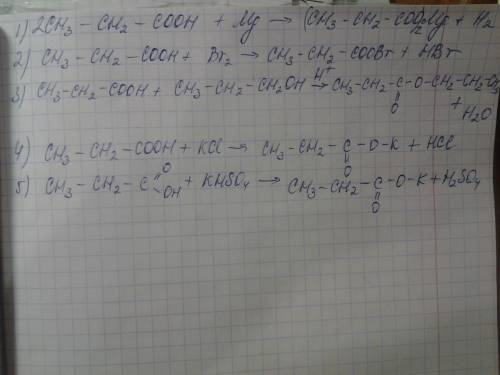 1) 2CH₃ – CH₂ – COOH + Mg → (CH₃ – CH₂ – COO)₂Mg + H₂
2) CH₃ – CH₂ – COOH + Br₂ → CH₃ – CH₂ – COOBr + HBr
3) CH₃–CH₂–COOH + CH₃–CH₂–CH₂OH –H⁺→ CH₃–CH₂–C(=O)–O–CH₂–CH₂–CH₃
+ H₂O
4) CH₃–CH₂–COOH + KCl → CH₃–CH₂–C(=O)–O–K + HCl
5) CH₃–CH₂–C(=O)–OH + KHSO₄ → CH₃–CH₂–C(=O)–O–K + H₂SO₄